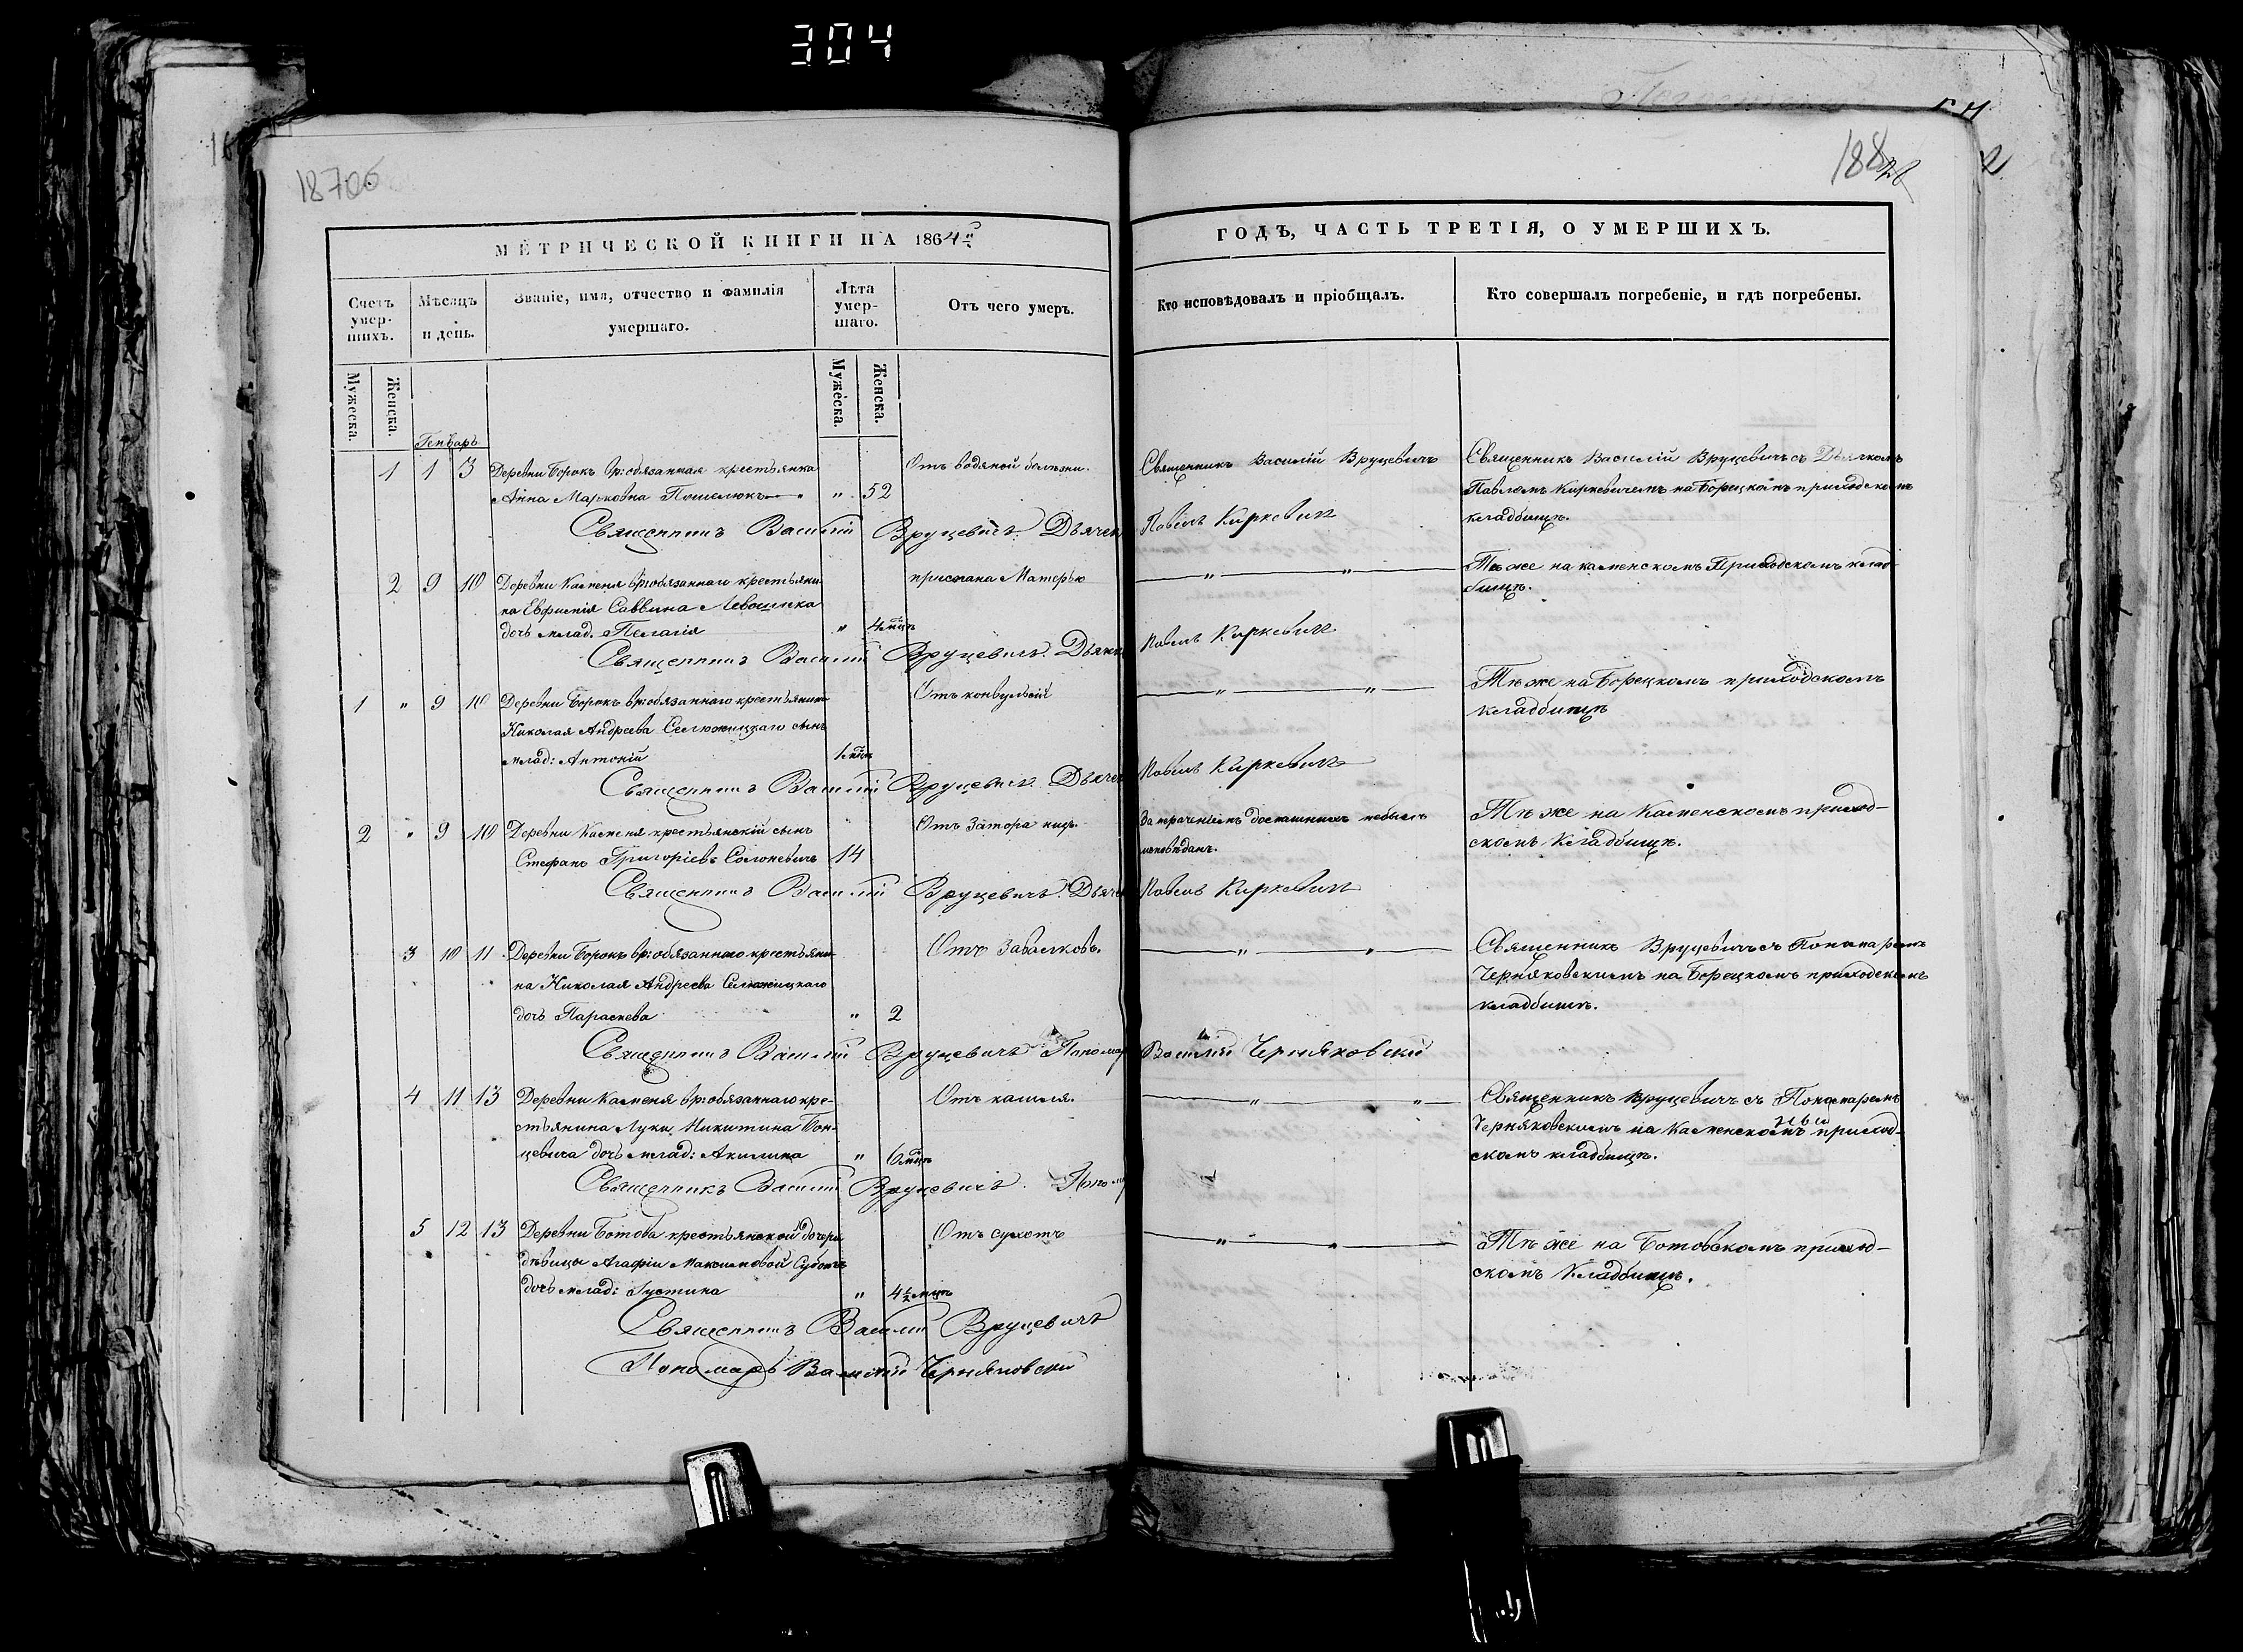 304
187об
188
МЕТРИЧЕСКОЙ КНИГИ НА 1864й
ГОДЪ, ЧАСТЬ ТРЕТІЯ, О УМЕРШИХЪ.
Счетъ умер-шихъ.
Мѣсяцъ и день.
Званіе, имя, отчество и фамилія умершаго.
Лѣта умер-шаго.
Отъ чего умеръ.
Кто исповѣдовалъ и пріобщалъ.
Кто совершалъ погребеніе, и гдѣ погребены.
Мужеска.
Женска.
Мужеска.
Женска.
Генварь
1 1 3 Деревни Борокъ вр: обязанная крестьянка
Анна Марковна " 52
Отъ водяной болѣзни.
Священникъ Василій Вруцевичъ
Священникъ Василій Вруцевичъ съ Дьячкомъ
Павломъ Киркевичемъ на Борецкомъ приходскомъ
кладбищѣ.
Священникъ Василій Вруцевичъ. Дьячек
Павелъ Киркевичъ
2 9 10 Деревни Каменя вр: обязаннаго крестьяни-
на Евфимія Саввина
дочь млад. Пелагія " 4 мцъ
приспана Матерью
" "
Тѣ же на каменскомъ Приходскомъ клад-
бищѣ.
Священникъ Василій Вруцевичъ. Дьячек
Павелъ Киркевичъ
1 " 9 10 Деревни Борокъ вр: обязаннаго крестьянина
Николая Андреева Селюжицкаго сынъ
млад: Антоній 1 мцъ
Отъ конвульсій
" "
Тѣ же на Борецкомъ приходскомъ
кладбищѣ
Священникъ Василій Вруцевичъ. Дьячек
Павелъ Киркевичъ
2 " 9 10 Деревни Каменя крестьянскій сынъ
Стефанъ Григоріевъ Солоневичъ 14
Отъ Затора
не былъ
исповѣданъ.
Тѣ же на Каменскомъ приход-
скомъ Кладбищѣ.
Священникъ Василій Вруцевичъ. Дьячек
Павелъ Киркевичъ
3 10 11 Деревни Борокъ вр: обязаннаго крестьяни-
на Николая Андреева Селюжицкаго
дочь Параскева " 2
Отъ Завалковъ.
" "
Священникъ Вруцевичъ съ Понамаремъ
Черняковскимъ на Борецкомъ приходскомъ
кладбищѣ.
Священникъ Василій Вруцевичъ Понома
Василій Черняковскій
4 11 13 Деревни Каменя вр: обязаннаго кре-
стьянина Луки Никитина Бон-
цевича дочь млад: Акилина " 6 мцъ
Отъ кашля.
" "
Священникъ Вруцевичъ съ Понамаремъ
Черняковскимъ на Каменскомъ приход-
скомъ кладбищѣ.
Священникъ Василій Вруцевичъ. Поно
5 12 13 Деревни Ботова крестьянской дочери
дѣвицы Агафіи Максимовой
дочь млад: Іустина " 4½ мцъ
Отъ сухотъ
" "
Тѣ же на Ботовскомъ приход-
скомъ Кладбищѣ.
Священникъ Василій Вруцевичъ
Пономарь Василій Черняковскій